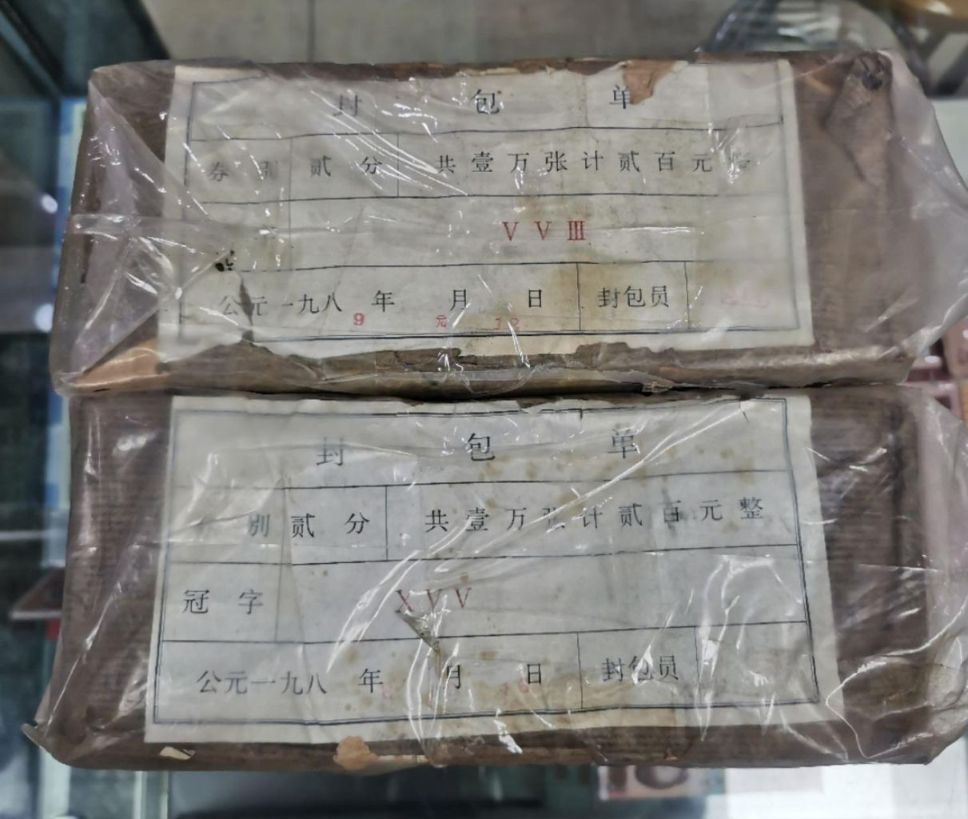 封 包 单
券 别 贰 分 共 壹 万 张 计 贰 百 元 整
V V III
公元一九八 年 月 日 封包员
9 元 12
封 包 单
别 贰 分 共 壹 万 张 计 贰 百 元 整
冠 字 X V V
公元一九八 年 月 日 封包员